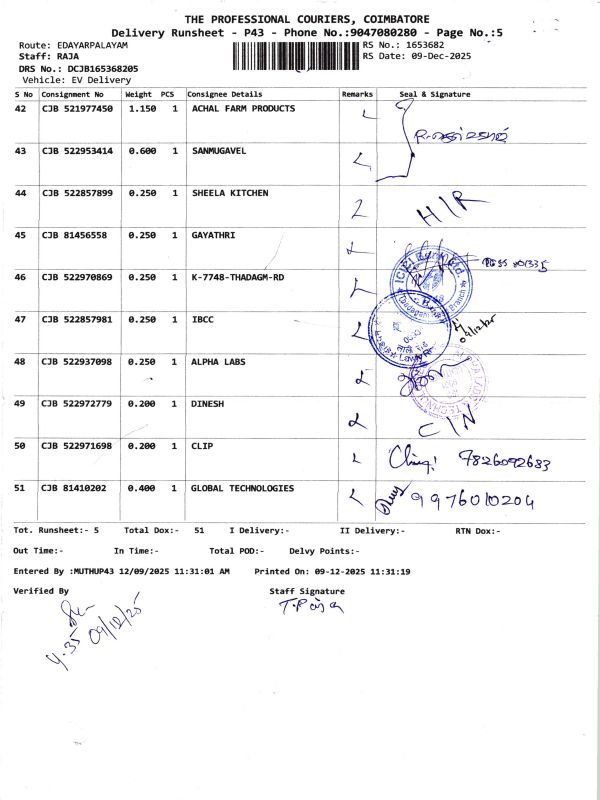 THE PROFESSIONAL COURIERS, COIMBATORE
Delivery Runsheet - P43 - Phone No.:9047080280 - Page No.:5
Route: EDAYARPALAYAM RS No.: 1653682
Staff: RAJA RS Date: 09-Dec-2025
DRS No.: DCJB165368205
Vehicle: EV Delivery
S No Consignment No Weight PCS Consignee Details Remarks Seal & Signature
42 CJB 521977450 1.150 1 ACHAL FARM PRODUCTS
43 CJB 522953414 0.600 1 SANMUGAVEL
44 CJB 522857899 0.250 1 SHEELA KITCHEN H/R
45 CJB 81456558 0.250 1 GAYATHRI
46 CJB 522970869 0.250 1 K-7748-THADAGM-RD
47 CJB 522857981 0.250 1 IBCC
48 CJB 522937098 0.250 1 ALPHA LABS
49 CJB 522972779 0.200 1 DINESH C/N
50 CJB 522971698 0.200 1 CLIP 7826092683
51 CJB 81410202 0.400 1 GLOBAL TECHNOLOGIES 9976010204
Tot. Runsheet:- 5 Total Dox:- 51 I Delivery:- II Delivery:- RTN Dox:-
Out Time:- In Time:- Total POD:- Delvy Points:-
Entered By :MUTHUP43 12/09/2025 11:31:01 AM Printed On: 09-12-2025 11:31:19
Verified By Staff Signature
09/12/25
4.35